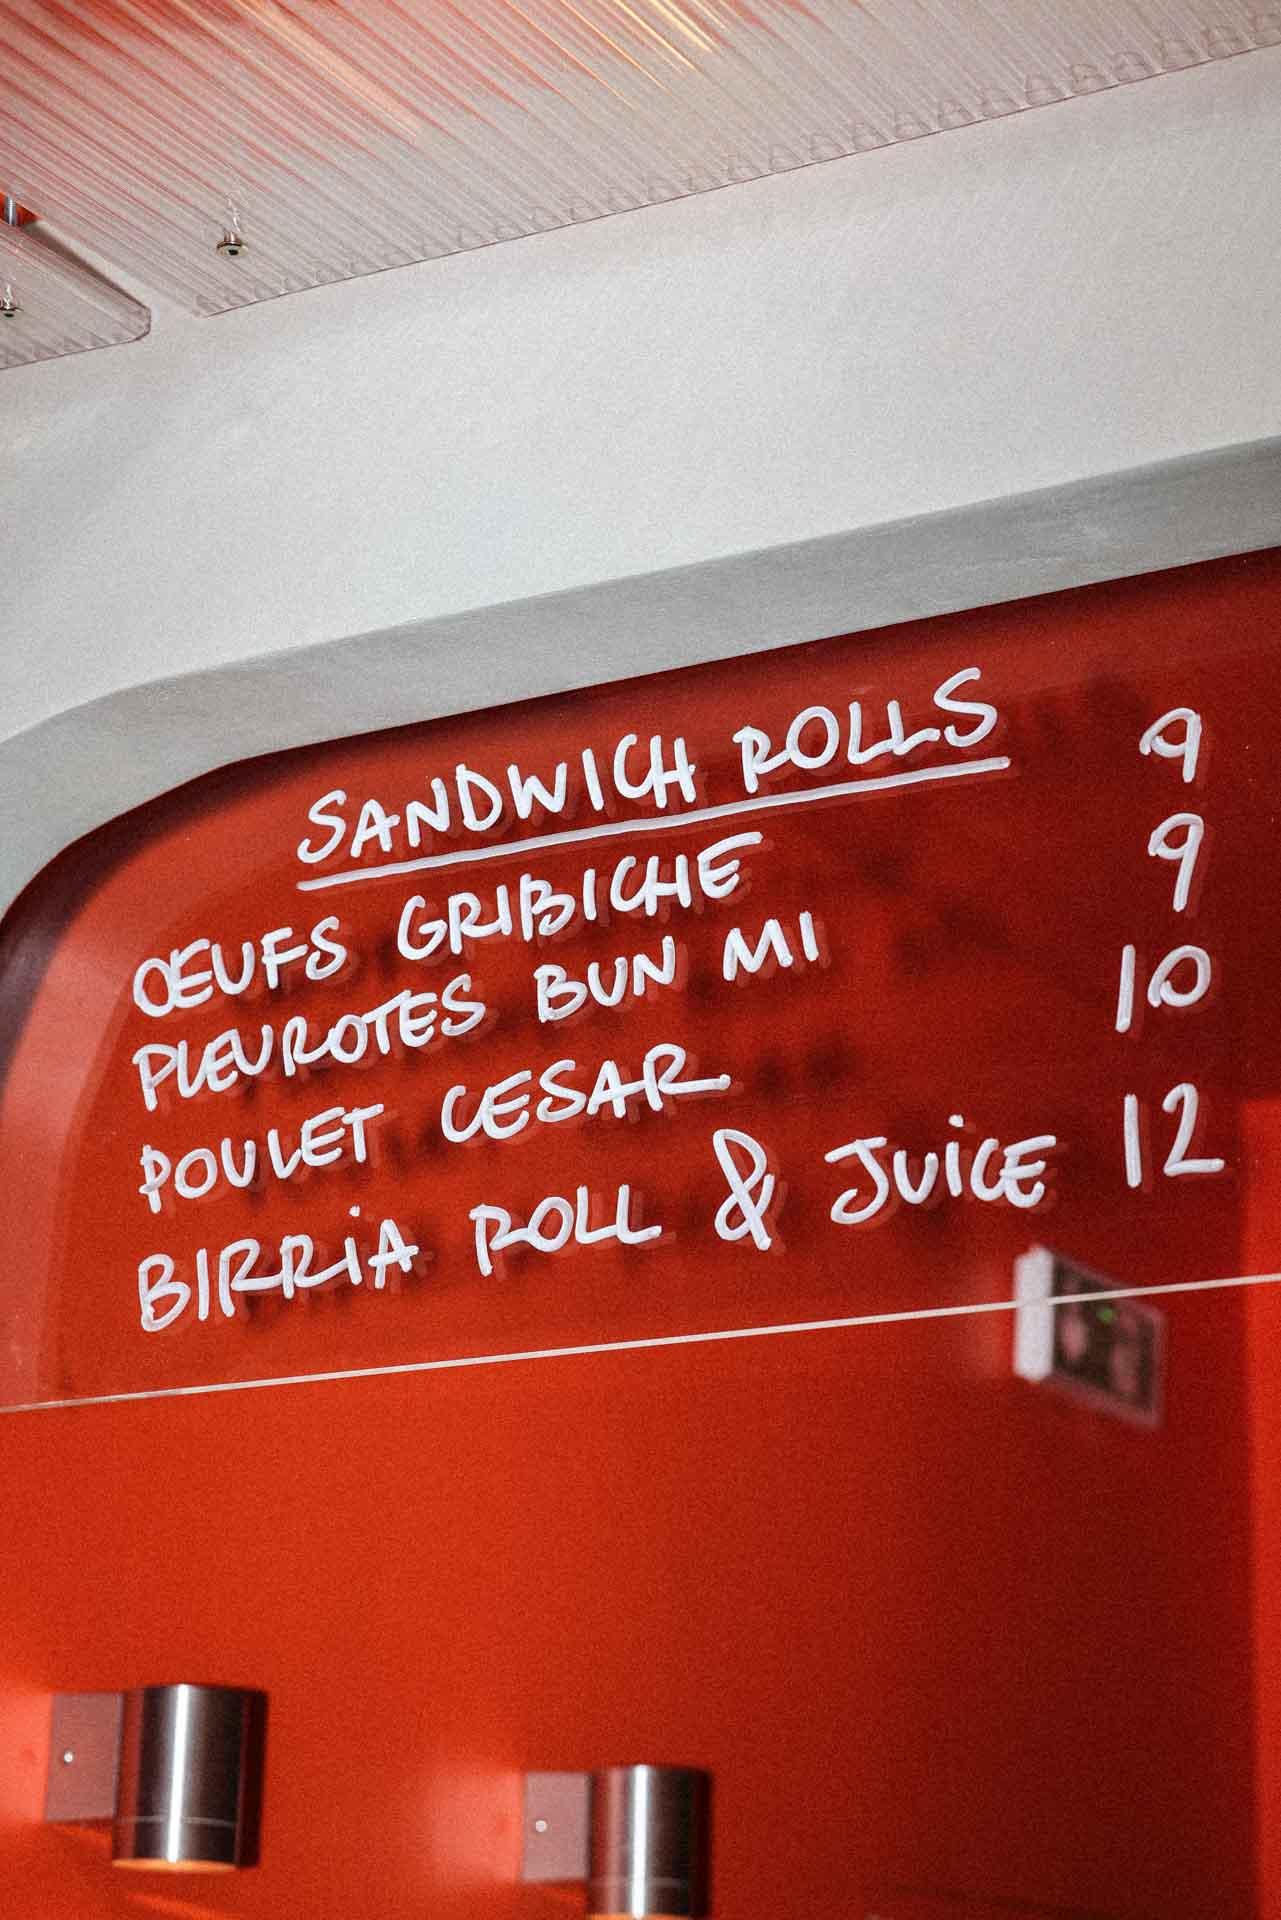 SANDWICH ROLLS
OEUFS GRIBICHE 9
PLEUROTES BUN MI 9
POULET CESAR 10
BIRRIA ROLL & JUICE 12